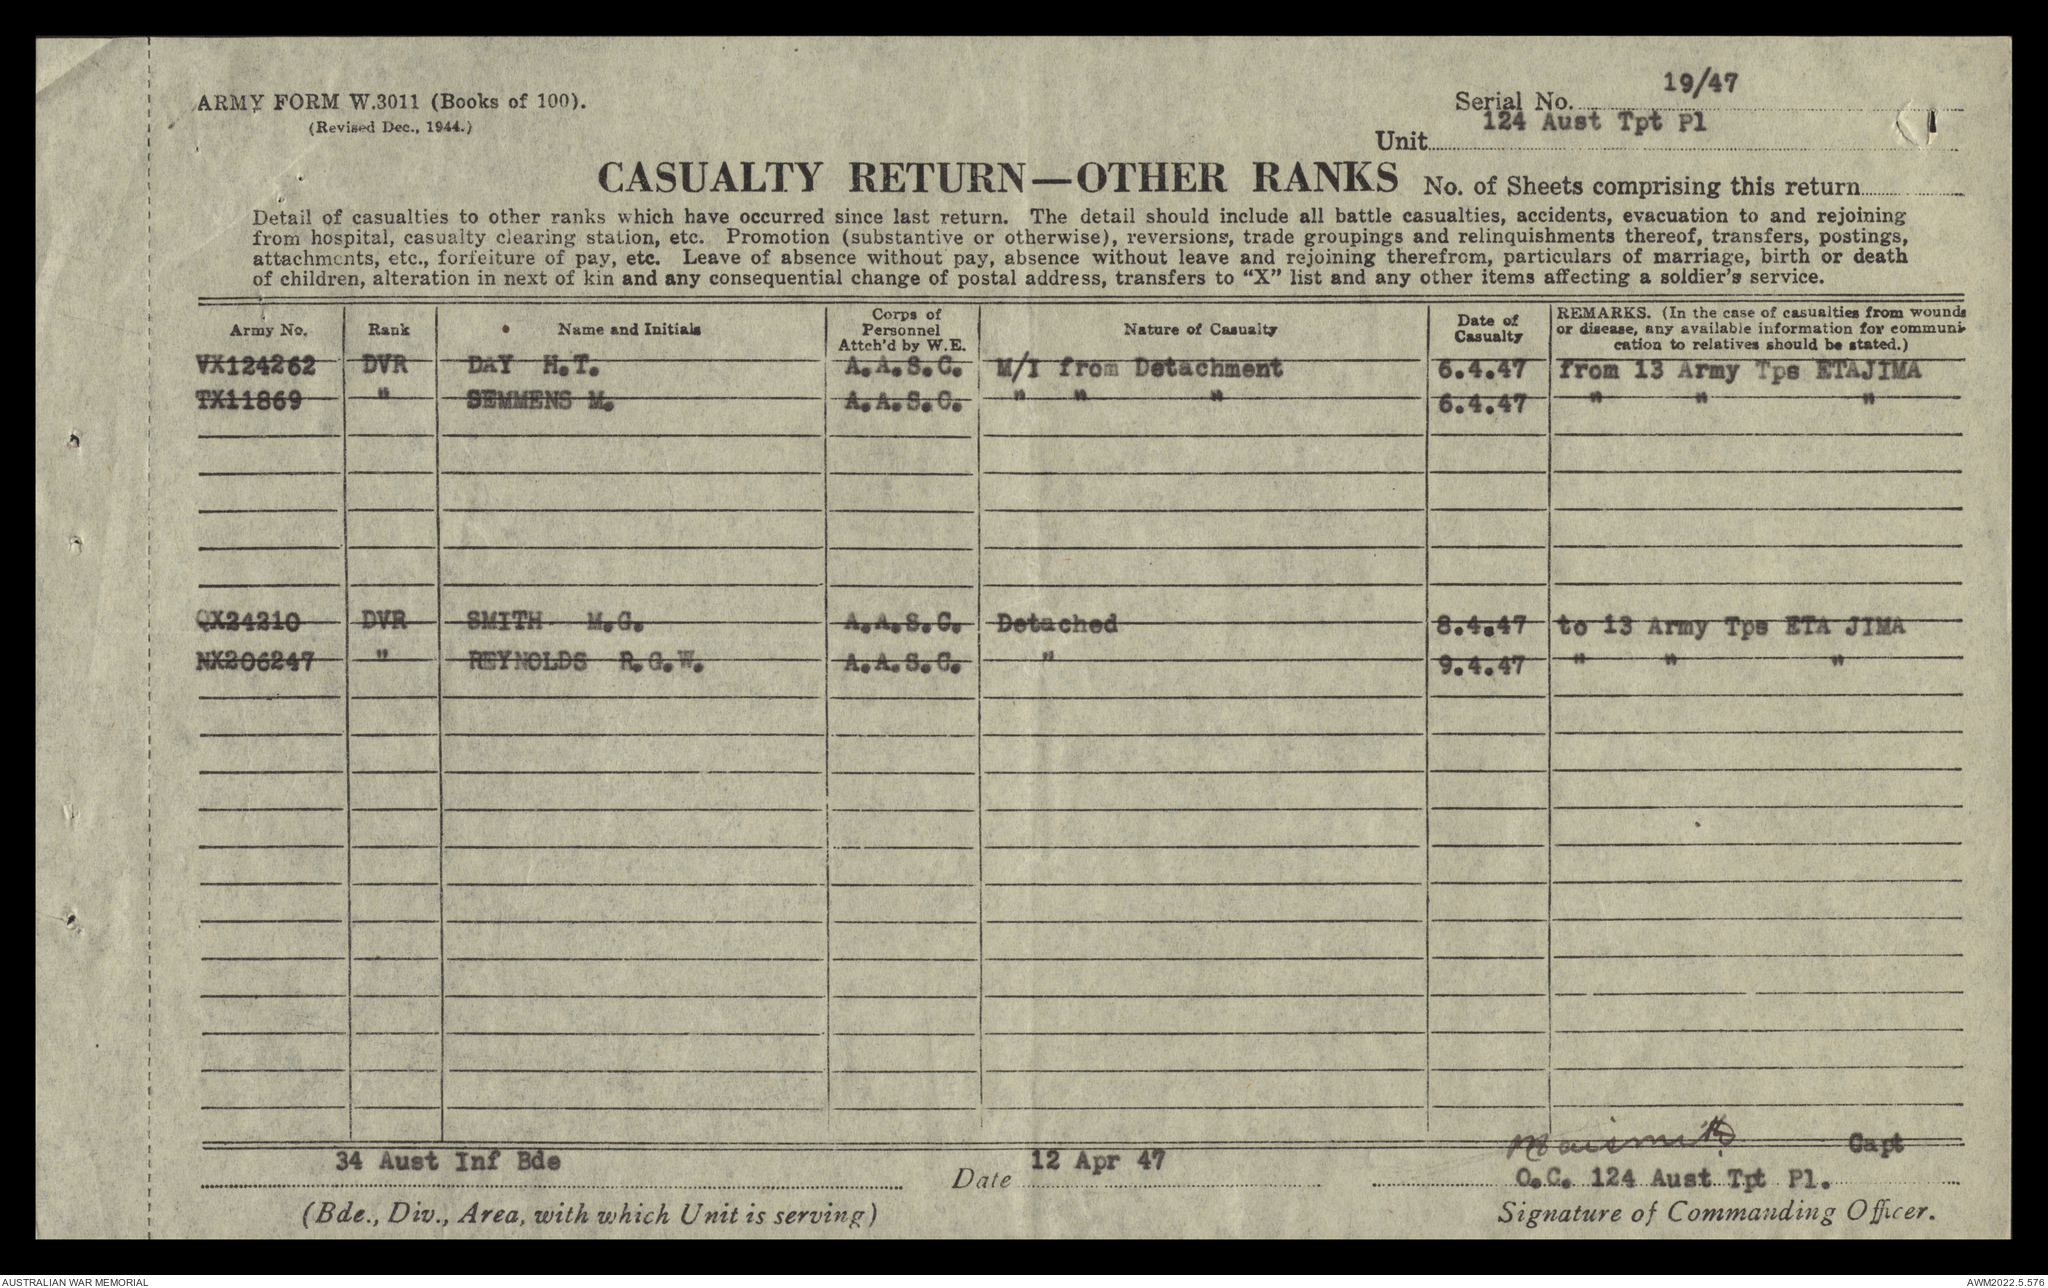 19/47
ARMY FORM W.3011 (Books of 100).
Serial No.
(Revised Dec., 1944.)
124 Aust Tpt Pl
Unit
CASUALTY RETURN—OTHER RANKS
No. of Sheets comprising this return
Detail of casualties to other ranks which have occurred since last return. The detail should include all battle casualties, accidents, evacuation to and rejoining
from hospital, casualty clearing station, etc. Promotion (substantive or otherwise), reversions, trade groupings and relinquishments thereof, transfers, postings,
attachments, etc., forfeiture of pay, etc. Leave of absence without pay, absence without leave and rejoining therefrom, particulars of marriage, birth or death
of children, alteration in next of kin and any consequential change of postal address, transfers to “X” list and any other items affecting a soldier's service.
Army No. Rank Name and Initials Corps of Personnel Attch'd by W.E. Nature of Casualty Date of Casualty REMARKS. (In the case of casualties from wounds or disease, any available information for communication to relatives should be stated.)
VX124262 DVR DAY H.T. A.A.S.C. M/I from Detachment 6.4.47 from 13 Army Tps ETAJIMA
TX11869 " SEMMENS M. A.A.S.C. " " " 6.4.47 " " "
QX24210 DVR SMITH M.G. A.A.S.C. Detached 8.4.47 to 13 Army Tps ETA JIMA
NX206247 " REYNOLDS R.G.W. A.A.S.C. " 9.4.47 " " "
Capt
34 Aust Inf Bde
Date 12 Apr 47
O.C. 124 Aust Tpt Pl.
(Bde., Div., Area, with which Unit is serving)
Signature of Commanding Officer.
AUSTRALIAN WAR MEMORIAL
AWM2022.5.576